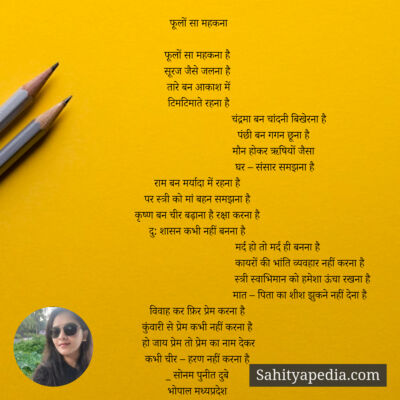 फूलों सा महकना
फूलों सा महकना है
सूरज जैसे जलना है
तारे बन आकाश में
टिमटिमाते रहना है
चंद्रमा बन चांदनी बिखेरना है
पंछी बन गगन छूना है
मौन होकर ऋषियों जैसा
घर – संसार समझना है
राम बन मर्यादा में रहना है
पर स्त्री को मां बहन समझना है
कृष्ण बन चीर बढ़ाना है रक्षा करना है
दु: शासन कभी नहीं बनना है
मर्द हो तो मर्द ही बनना है
कायरों की भांति व्यवहार नहीं करना है
स्त्री स्वाभिमान को हमेशा ऊंचा रखना है
मात – पिता का शीश झुकने नहीं देना है
विवाह कर फ़िर प्रेम करना है
कुंवारी से प्रेम कभी नहीं करना है
हो जाय प्रेम तो प्रेम का नाम देकर
कभी चीर – हरण नहीं करना है
_ सोनम पुनीत दुबे
भोपाल मध्यप्रदेश
Sahityapedia.com